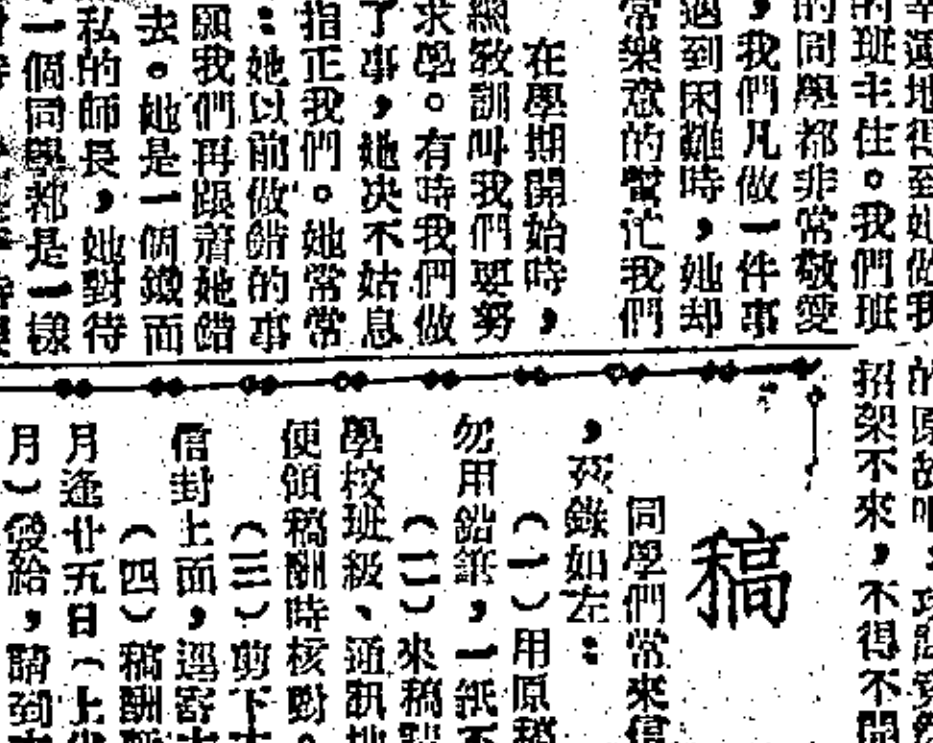 幸運地得到她做我
的班主任。我們班
的同學都非常敬愛
，我們凡做一件事
遇到困難時，她却
常樂意的幫忙我們
在學期開始時，
教訓叫我們要努
求學。有時我們做
了事，她决不姑息
指正我們。她常常
：她以前做錯的事
願我們再跟着她錯
去。她是一個鐵面
私的師長，她對待
一個同學都是一樣
招架不來，不得不開
稿
同學們常來信
，茲錄如左：
（一）用原稿
勿用鉛筆，一紙不
（二）來稿
學校班級、通訊
便領稿酬時核對。
（三）剪下
信封上面，逕寄
（四）稿酬
月逢廿五日（上
月）發給，請到